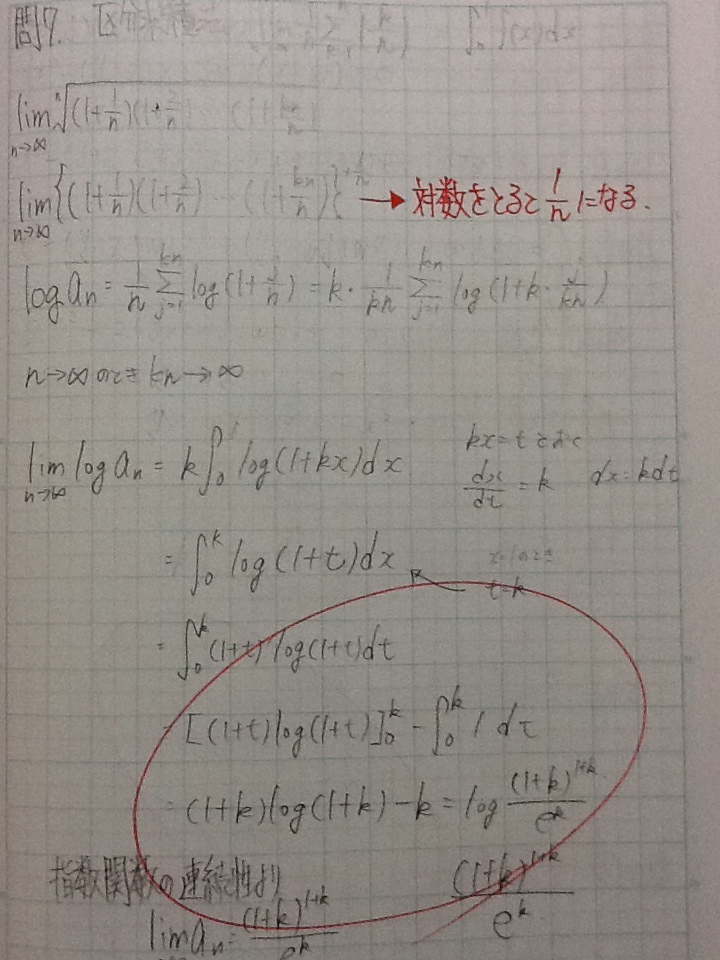 問7. 区分求積 lim 1/n Σ f(k/n) ∫₀¹ f(x)dx
lim n→∞ ⁿ√(1+1/n)(1+2/n) (1+kn/n)
lim n→∞ {(1+1/n)(1+2/n) … (1+kn/n)}^{1/n} → 対数をとると 1/n になる.
log aₙ = 1/n Σ_{j=1}^{kn} log(1+j/n) = k・1/kn Σ_{j=1}^{kn} log(1+k・j/kn)
n→∞のとき kn→∞
lim n→∞ log aₙ = k∫₀¹ log(1+kx)dx
kx=t とおく
dx/dt = k dx=kdt
= ∫₀ᵏ log(1+t)dx
x=1のとき
t=k
= ∫₀ᵏ (1+t)' log(1+t)dt
= [(1+t)log(1+t)]₀ᵏ - ∫₀ᵏ 1 dt
= (1+k)log(1+k)-k = log (1+k)^{1+k}/e^k
指数関数の連続性より
lim aₙ = (1+k)^{1+k}/e^k
(1+k)^{1+k}/e^k